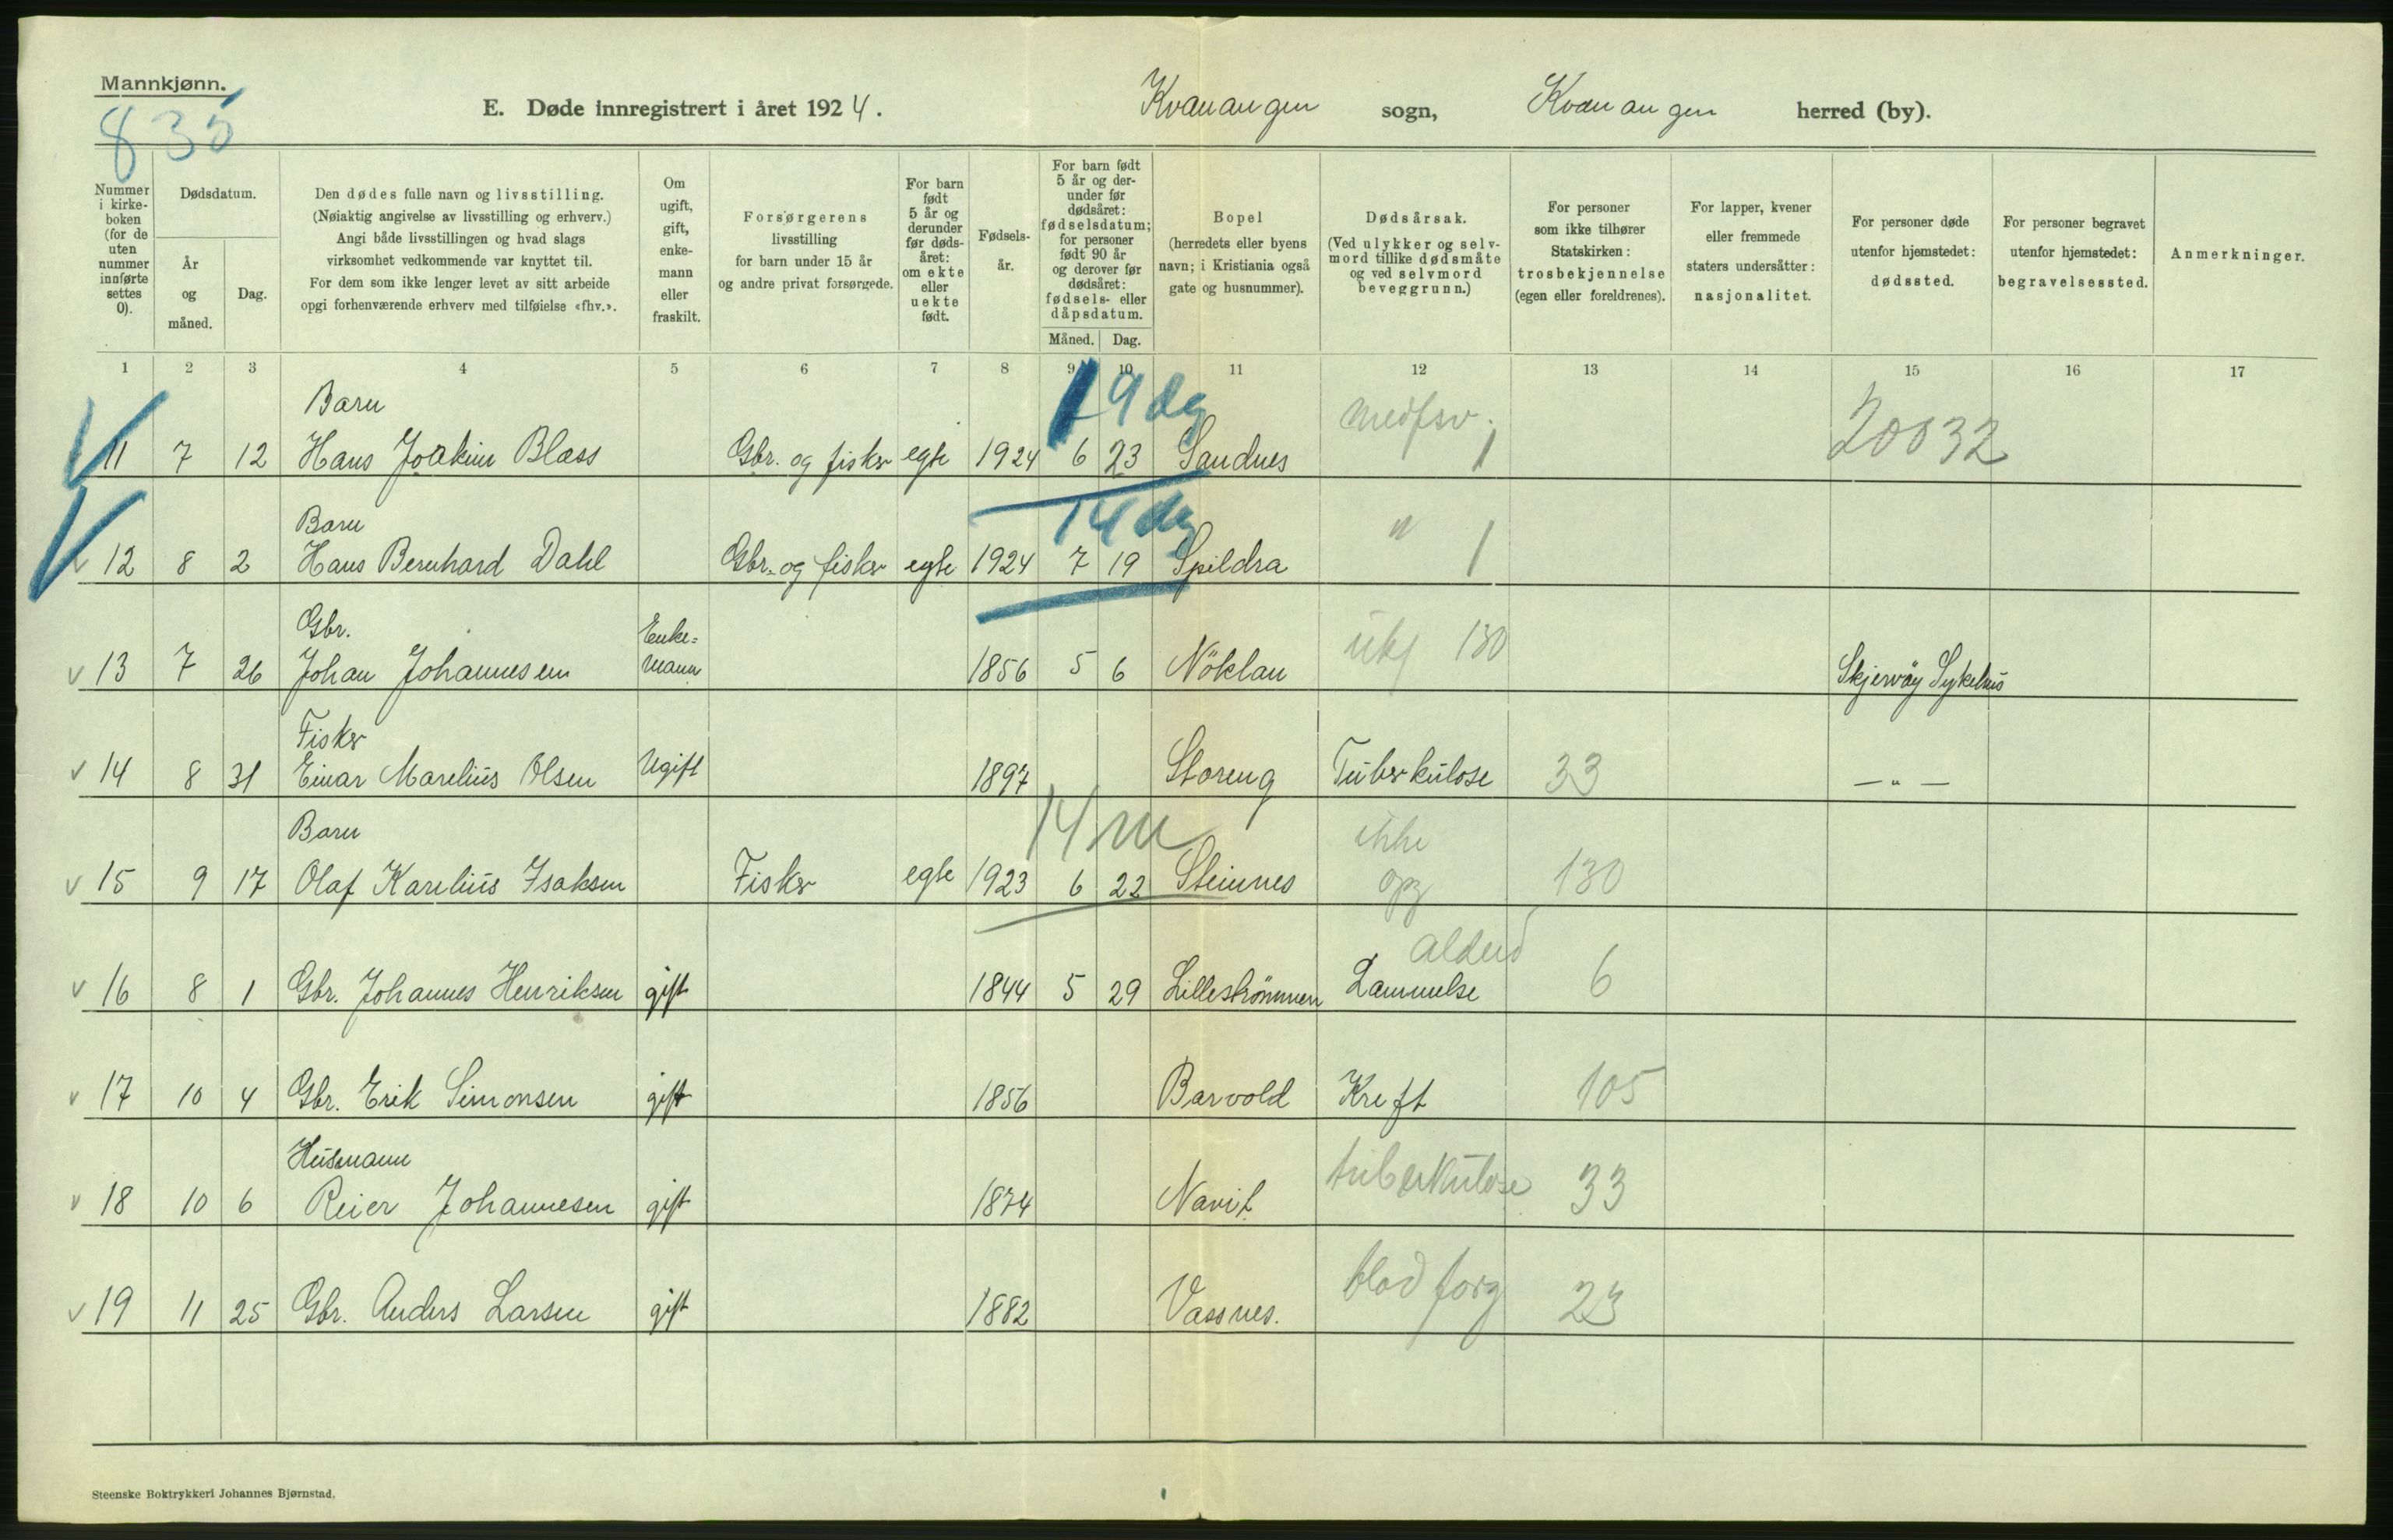 Mannkjønn.
835
E. Døde innregistrert i året 1924. Kvænangen sogn, Kvænangen herred (by).
Nummer i kirke-boken (for de uten nummer innførte settes 0).
Dødsdatum.
År og måned.
Dag.
Den dødes fulle navn og livsstilling.
(Nøiaktig angivelse av livsstilling og erhverv.)
Angi både livsstillingen og hvad slags
virksomhet vedkommende var knyttet til.
For dem som ikke lenger levet av sitt arbeide
opgi forhenværende erhverv med tilføielse «fhv.».
Om ugift, gift, enke-mann eller fraskilt.
Forsørgerens
livsstilling
for barn under 15 år
og andre privat forsørgede.
For barn født 5 år og derunder før døds-året: om ekte eller uekte født.
Fødsels-år.
For barn født 5 år og der-under før dødsåret: fødselsdatum; for personer født 90 år og derover før dødsåret: fødsels- eller dåpsdatum.
Måned. Dag.
Bopel
(herredets eller byens
navn; i Kristiania også
gate og husnummer).
Dødsårsak.
(Ved ulykker og selv-
mord tillike dødsmåte
og ved selvmord
beveggrunn.)
For personer
som ikke tilhører
Statskirken:
trosbekjennelse
(egen eller foreldrenes).
For lapper, kvener
eller fremmede
staters undersåtter:
nasjonalitet.
For personer døde
utenfor hjemstedet:
dødssted.
For personer begravet
utenfor hjemstedet:
begravelsessted.
Anmerkninger.
1 2 3 4 5 6 7 8 9 10 11 12 13 14 15 16 17
Barn 19 dg medfsv.
11 7 12 Hans Joakim Blæss Gbr. og fisker egte 1924 6 23 Sandnes 1 20032
Barn 14 dg
12 8 2 Hans Bernhard Dahl Gbr. og fisker egte 1924 7 19 Spildra " 1
Gbr. Enke=
v 13 7 26 Johan Johannesen mann 1856 5 6 Nöklan ukj 130 Skjervöy Sykehus
Fisker
v 14 8 31 Einar Marelius Olsen Ugift 1897 Storeng Tuberkulose 33 — " —
Barn 14 m ikke
v 15 9 17 Olaf Karelius Isaksen Fisker egte 1923 6 22 Steinnes opg 130
alderd
v 16 8 1 Gbr. Johannes Henriksen gift 1844 5 29 Lilleströmmen Lammelse 6
v 17 10 4 Gbr. Erik Simonsen gift 1856 Barvold Kreft 105
Husmann
v 18 10 6 Reier Johannesen gift 1874 Navit tuberkulose 33
v 19 11 25 Gbr. Anders Larsen gift 1882 Vassnes. blodforg 23
Steenske Boktrykkeri Johannes Bjørnstad.